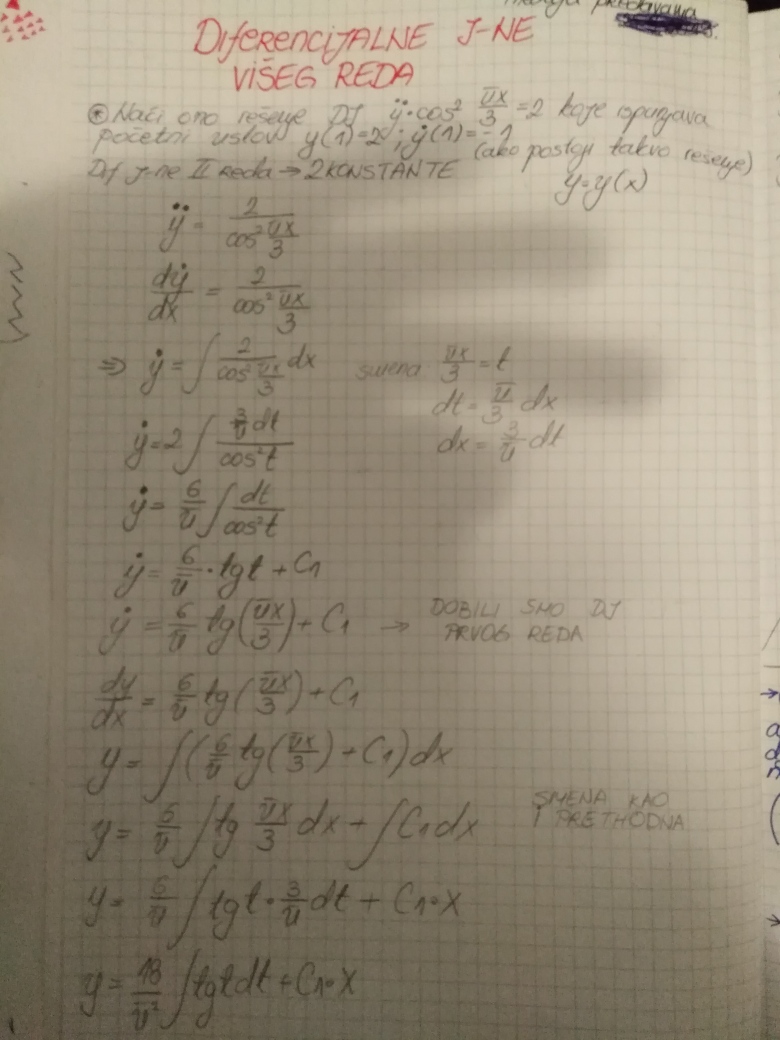 predavanja
DIFERENCIJALNE J-NE
VIŠEG REDA
⊛ Naći ono rešenje DJ ÿ·cos² πx/3 = 2 koje ispunjava
početni uslov y(1)=2; ẏ(1)=-1
(ako postoji takvo rešenje)
Dif j-ne II reda → 2 KONSTANTE
y=y(x)
ÿ = 2/(cos² πx/3)
dẏ/dx = 2/(cos² πx/3)
⇒ ẏ = ∫ 2/(cos² πx/3) dx smena πx/3 = t
dt = π/3 dx
dx = 3/π dt
ẏ = 2 ∫ (3/π dt)/(cos²t)
ẏ = 6/π ∫ dt/(cos²t)
ẏ = 6/π · tgt + C₁
ẏ = 6/π tg(πx/3) + C₁ → DOBILI SMO DJ
PRVOG REDA
dy/dx = 6/π tg(πx/3) + C₁
y = ∫(6/π tg(πx/3) + C₁) dx
y = 6/π ∫ tg πx/3 dx + ∫ C₁ dx SMENA KAO
I PRETHODNA
y = 6/π ∫ tgt · 3/π dt + C₁·x
y = 18/π² ∫ tgt dt + C₁·x